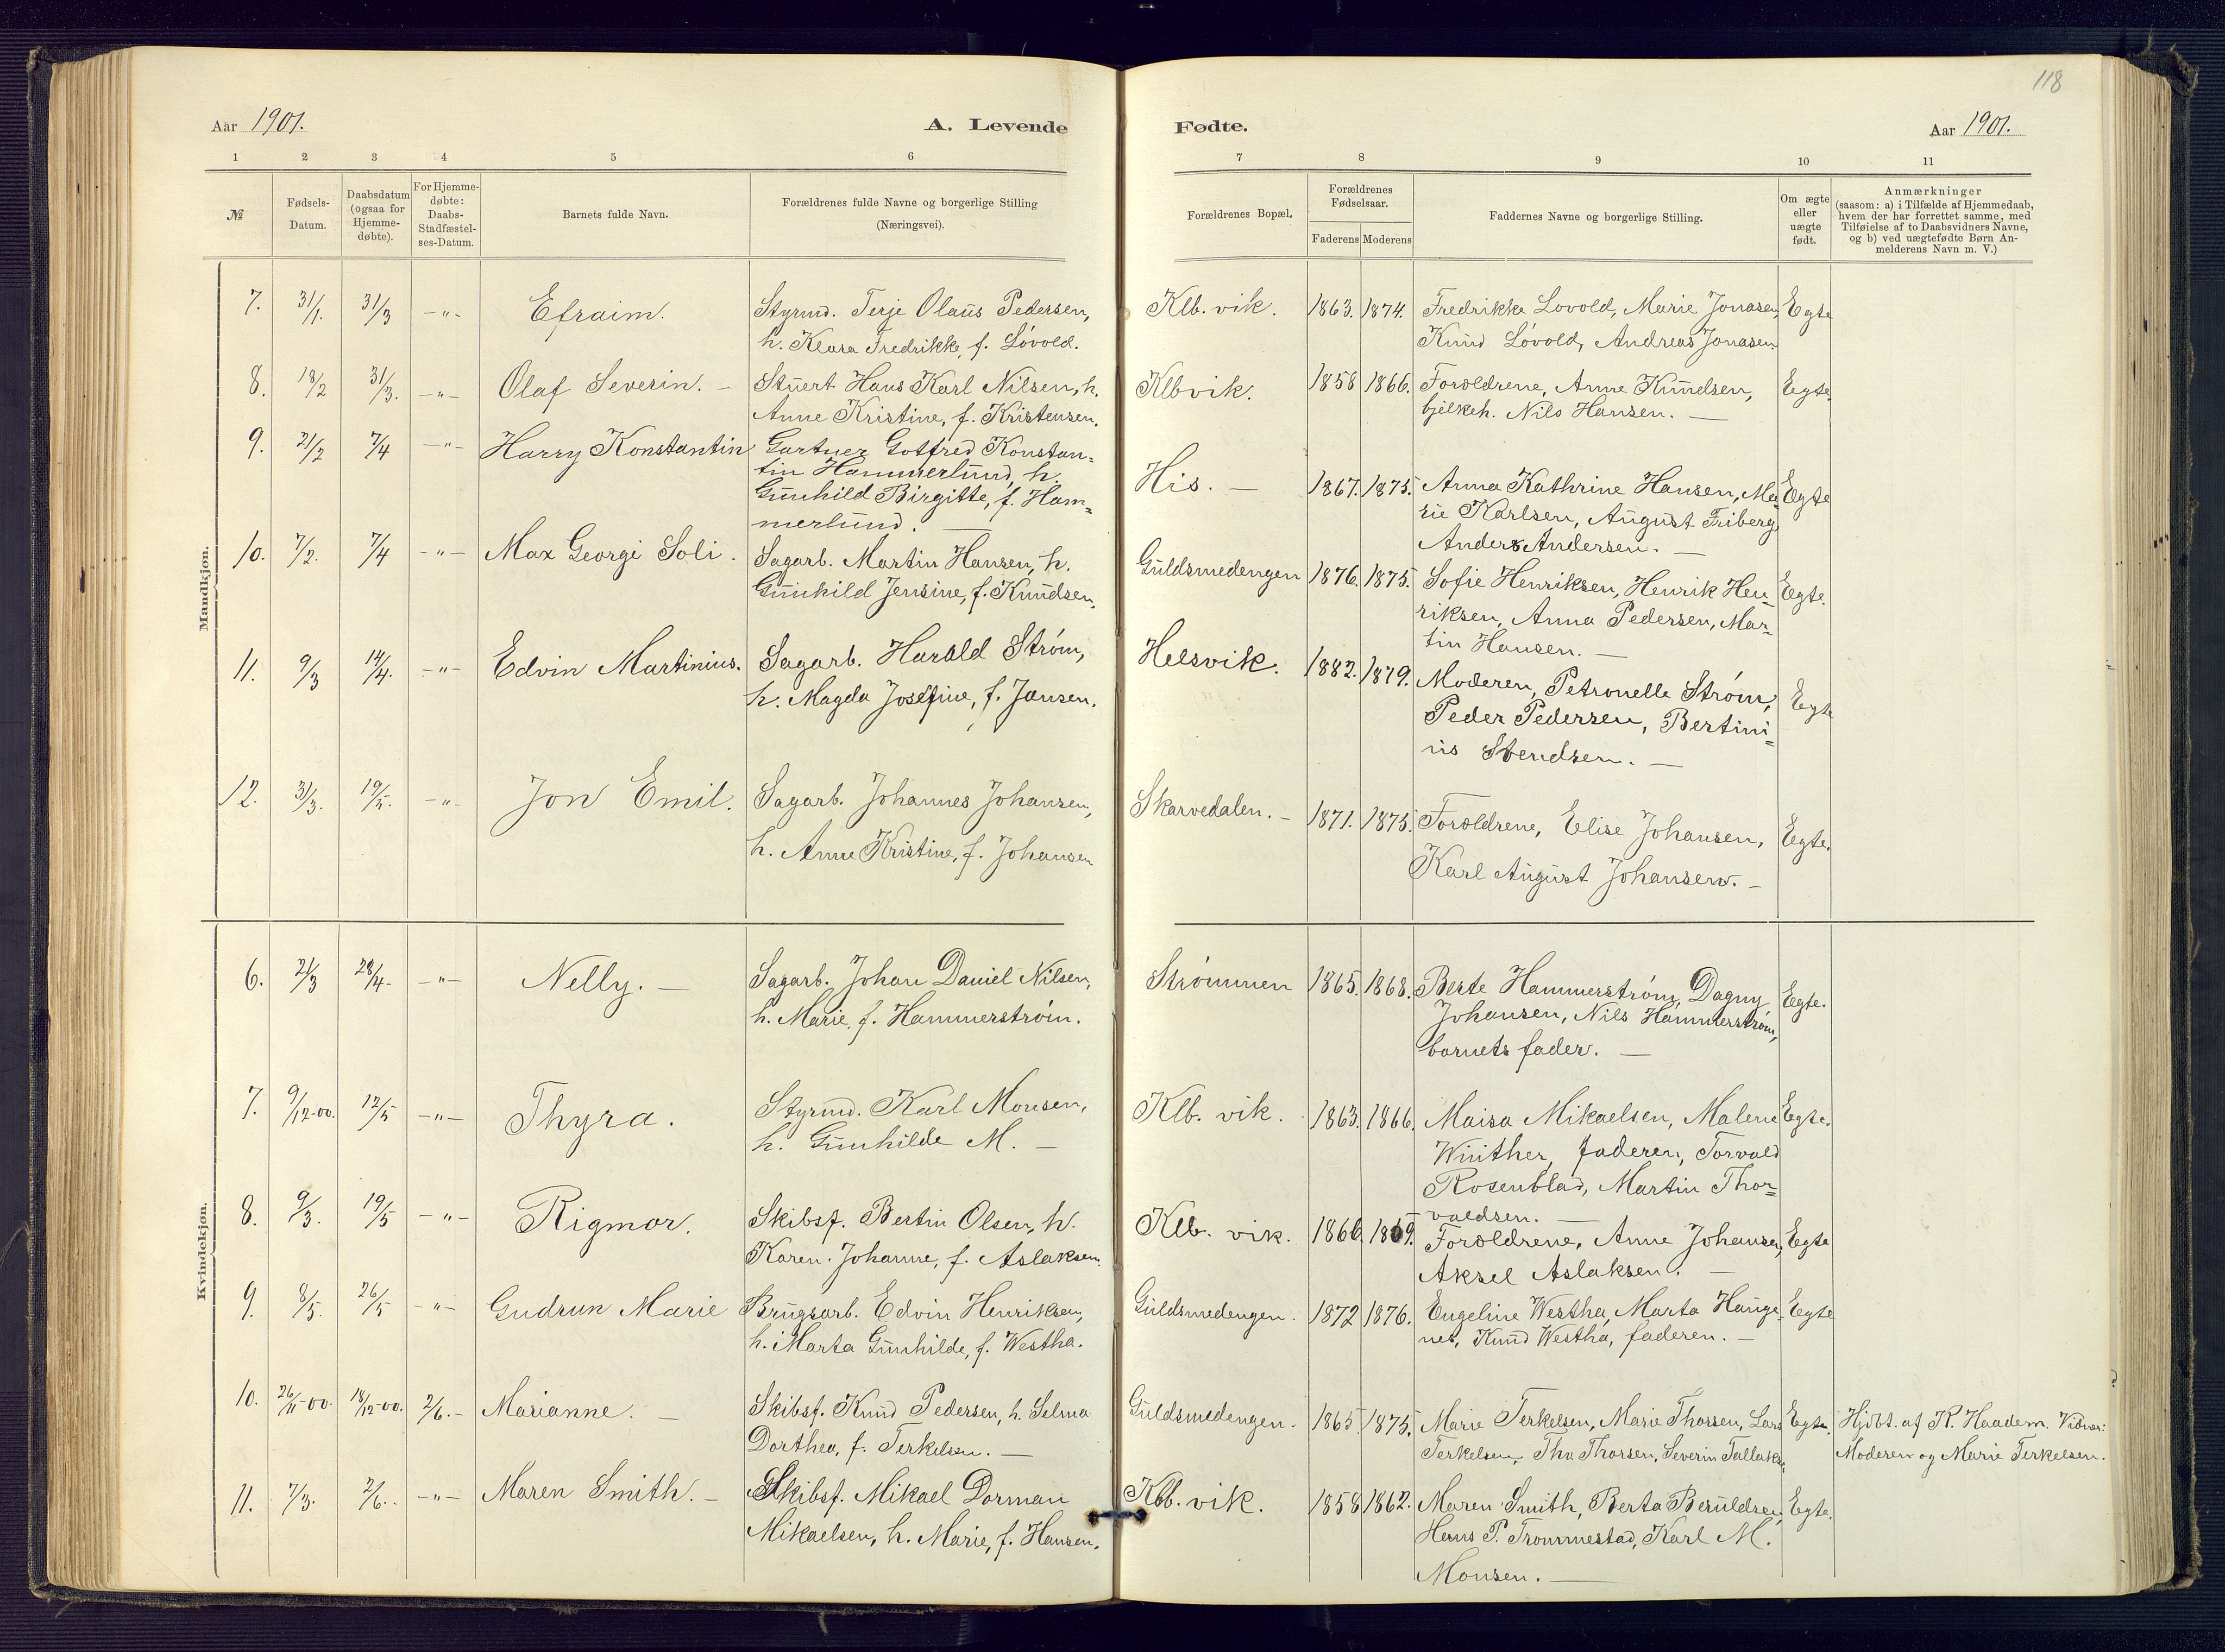 118
Aar 1901.
A. Levende
Fødte.
Aar 1901.
1 2 3 4 5 6
7 8 9 10 11
№
Fødsels-
Datum.
Daabsdatum
(ogsaa for
Hjemme-
døbte).
For Hjemme-
døbte:
Daabs-
Stadfæstel-
ses-Datum.
Barnets fulde Navn.
Forældrenes fulde Navne og borgerlige Stilling
(Næringsvei).
Forældrenes Bopæl.
Forældrenes
Fødselsaar.
Faderens Moderens
Faddernes Navne og borgerlige Stilling.
Om ægte
eller
uægte
født.
Anmærkninger
(saasom: a) i Tilfælde af Hjemmedaab,
hvem der har forrettet samme, med
Tilføielse af to Daabsvidners Navne,
og b) ved uægtefødte Børn An-
melderens Navn m. V.)
Mandkjøn.
7. 31/1. 31/3 -"- Efraim.
Styrmd. Terje Olaus Pedersen,
h. Klara Fredrikke, f. Lóvold.
Klb. vik. 1863. 1874.
Fredrikke Lovold, Marie Jonasen,
Knud Lóvold, Andreas Jonasen.
Egte
8. 18/2 31/3. -"- Olaf Severin. -
Stuert Hans Karl Nilsen, h.
Anne Kristine, f. Kristensen.
Klbvik. 1858 1866.
Foroldrene, Anne Knudsen,
bjelkeh. Nils Hansen. -
Egte.
9. 21/2 7/4 -"- Harry Konstantin
Gartner Gotfred Konstan=
tin Hammerlund, h.
Gunhild Birgitte, f. Ham=
merlund. -
His. - 1867. 1875.
Anna Kathrine Hansen, Ma
rie Karlsen, August Friberg,
Anders Andersen. -
Egte
10. 7/2. 7/4 -"- Max Georgi Soli.
Sagarb. Martin Hansen, h.
Gunhild Jensine, f. Knudsen.
Guldsmedengen 1876. 1875.
Sofie Henriksen, Henrik Hen=
riksen, Anna Pedersen, Mar=
tin Hansen. -
Egte.
11. 9/3 14/4. -"- Edvin Martinius.
Sagarb. Harald Stróm,
h. Magda Josefine, f. Jansen.
Helsvik. 1882. 1879.
Moderen, Petronelle Stróm,
Peder Pedersen, Bertini=
us Svendsen. -
Egte
12. 31/3. 19/5. -"- Jon Emil.
Sagarb. Johannes Johansen,
h. Anne Kristine, f. Johansen
Skarvedalen. - 1871. 1875.
Foroldrene, Elise Johansen,
Karl August Johansen. -
Egte.
Kvindekjøn.
6. 21/3 28/4- -"- Nelly. -
Sagarb. Johan Daniel Nilsen,
h. Marie, f. Hammerstróm.
Strómmen 1865. 1868.
Berte Hammerstróm, Dagny
Johansen, Nils Hammerstróm,
barnets fader. -
Egte.
7. 9/12-00. 12/5 -"- Thyra.
Styrmd. Karl Monsen,
h. Gunhilde M. -
Klb. vik. 1863. 1866.
Maisa Mikaelsen, Malene
Winther, faderen, Torvald
Rosenblad, Martin Thor=
valdsen. -
Egte.
8. 9/3. 19/5 -"- Rigmor.
Skibsf. Bertin Olsen, h.
Karen Johanne, f. Aslaksen.
Klb. vik. 1866. 1869.
Foroldrene, Anne Johansen,
Aksel Aslaksen. -
Egte
9. 8/5. 26/5 -"- Gudrun Marie
Brugsarb. Edvin Henriksen,
h. Marta Gunhilde, f. Westha.
Guldsmedengen. 1872 1876.
Engeline Westha, Marta Hauge=
net, Knud Westha, faderen. -
Egte
10. 26/11-00. 18/12-00. 2/6.- Marianne. -
Skibsf. Knud Pedersen, h. Selma
Dorthea, f. Terkelsen. -
Guldsmedengen. 1865 1875.
Marie Terkelsen, Marie Thorsen, Lars
Terkelsen, Tho Thorsen, Severin Tallaks.
Egte.
Hjdbt. af K. Haadem. Vidner:
Moderen og Marie Terkelsen.
11. 7/3. 2/6.. -"- Maren Smith. -
Skibsf. Mikael Dorman
Mikaelsen, h. Marie, f. Hansen.
Klb. vik. 1858 1862.
Maren Smith, Berta Beruldsen,
Hans P. Trommestad, Karl M.
Monsen. -
Egte.